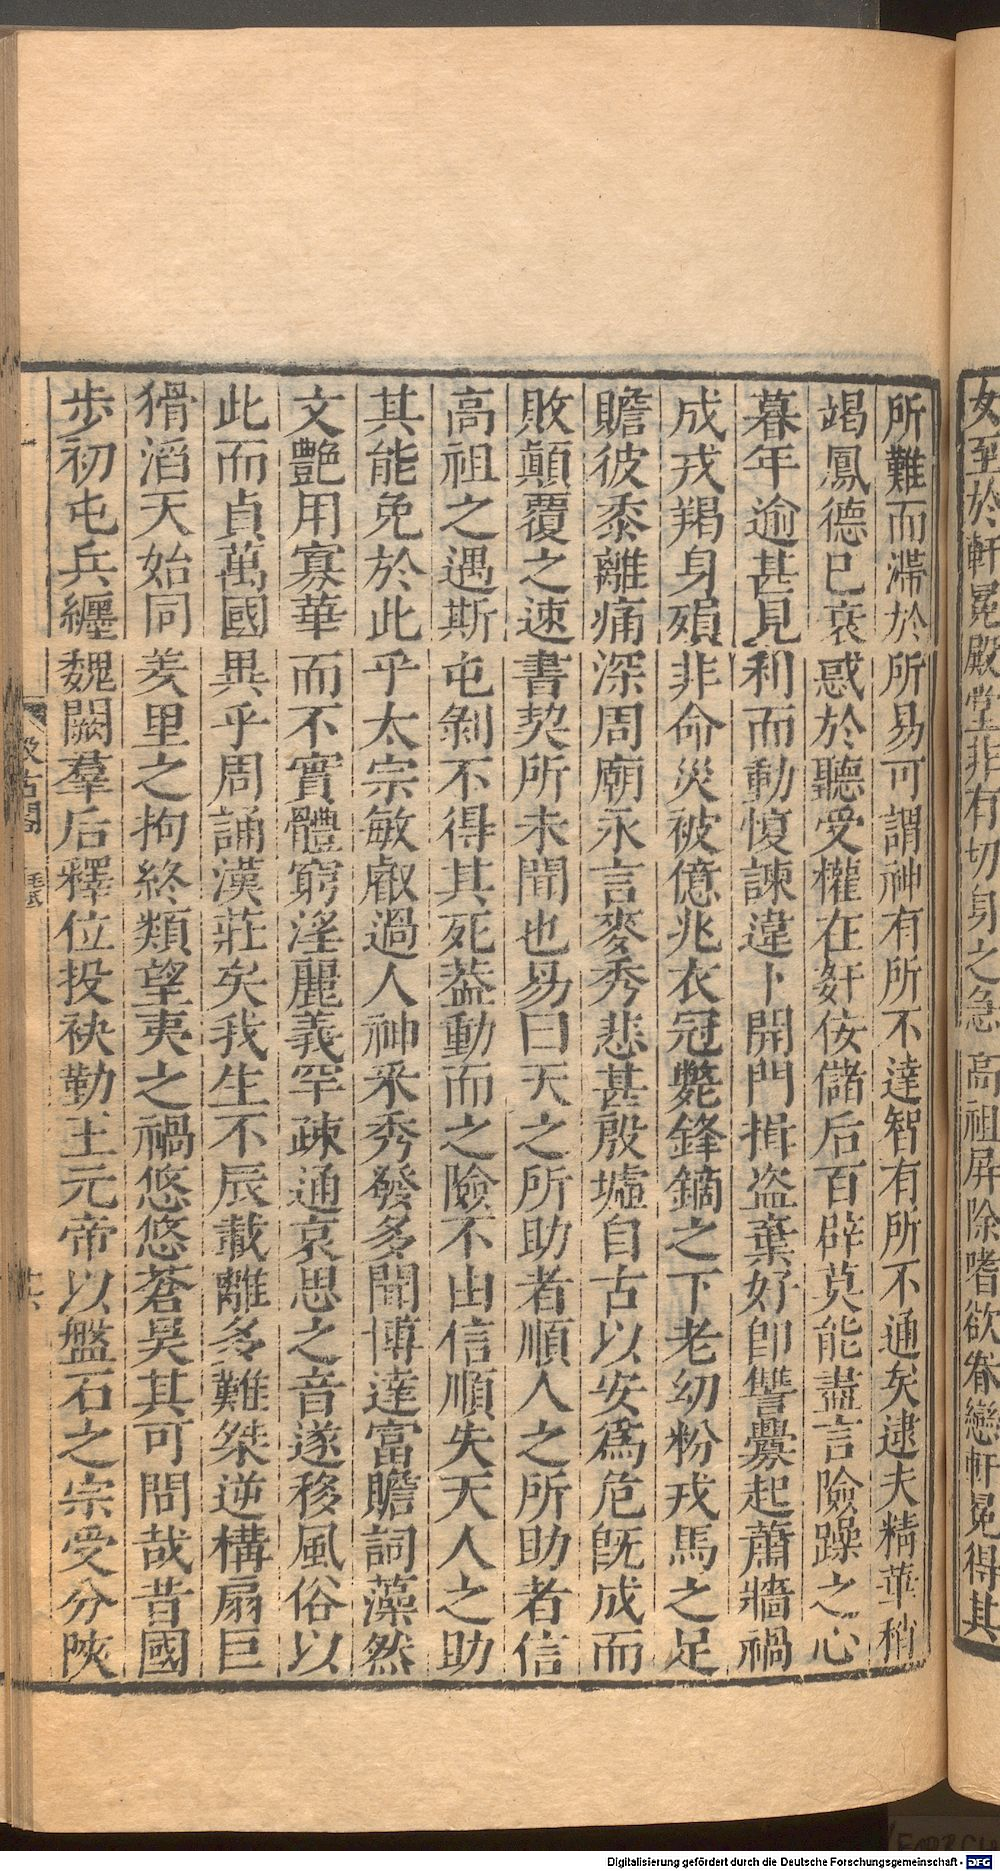 女至於軒冕殿堂非有切身之急高祖屏除嗜欲眷戀軒冕得其
所難而滯於所易可謂神有所不達智有所不通矣逮夫精華稍
竭鳳德已衰惑於聽受權在奸佞儲后百辟莫能盡言險躁之心
暮年逾甚見利而動愎諫違卜開門揖盗棄好即讐釁起蕭牆禍
成戎羯身殞非命災被億兆衣冠斃鋒鏑之下老幼粉戎馬之足
瞻彼黍離痛深周廟永言麥秀悲甚殷墟自古以安爲危旣成而
敗顛覆之速書契所未聞也易曰天之所助者順人之所助者信
高祖之遇斯屯剝不得其死葢動而之險不由信順失天人之助
其能免於此乎太宗敏叡過人神釆秀發多聞博達富贍詞藻然
文艶用寡華而不實體窮淫麗義罕疎通哀思之音遂移風俗以
此而貞萬國異乎周誦漢莊矣我生不辰載離多難桀逆構扇巨
猾滔天始同羑里之拘終類望夷之禍悠悠蒼昊其可問哉昔國
步初屯兵纏魏闕羣后釋位投袂勤王元帝以盤石之宗受分陝
汲古閣
Digitalisierung gefördert durch die Deutsche Forschungsgemeinschaft - DFG